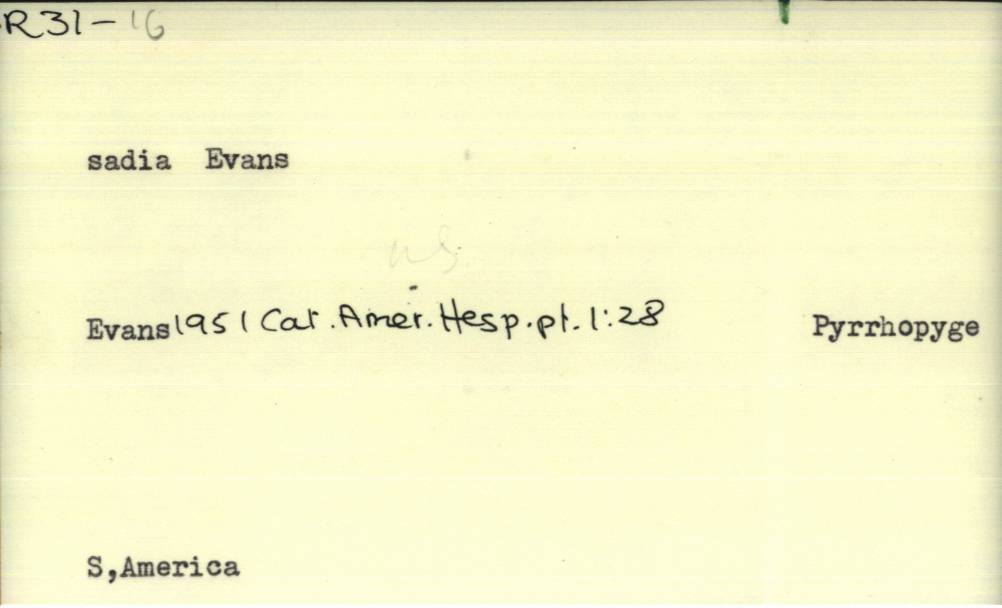 R31-16
sadia Evans
ns
Evans 1951 Cat. Amer. Hesp. pt. 1:28 Pyrrhopyge
S,America